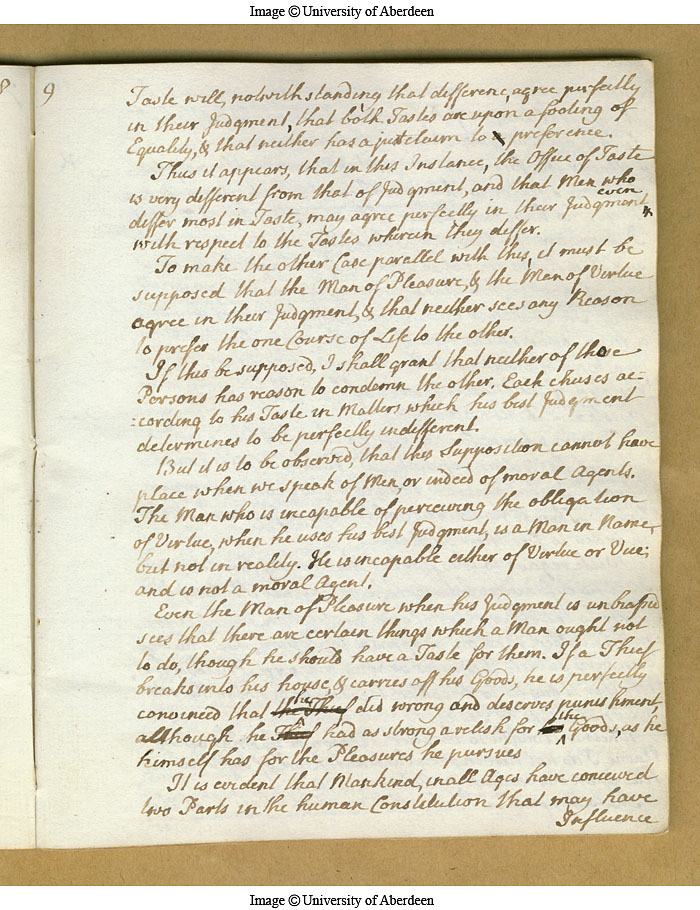 Image © University of Aberdeen
8
9
Taste will, notwithstanding that difference, agree perfectly
in their Judgment, that both Tastes are upon a footing of
Equality, & that neither has a just claim to preference.
Thus it appears, that in this Instance, the Office of Taste
is very different from that of Judgment, and that Men who
even
differ most in Taste, may agree perfectly in their Judgment
with respect to the Tastes wherein they differ.
To make the other Case parallel with this, it must be
supposed that the Man of Pleasure, & the Man of Virtue
agree in their Judgment, & that neither sees any Reason
to prefer the one Course of Life to the other.
If this be supposed, I shall grant that neither of those
Persons has reason to condemn the other. Each chuses ac=
=cording to his Taste in Matters which his best Judgment
determines to be perfectly indifferent.
But it is to be observed, that this Supposition cannot have
place when we speak of Men, or indeed of moral Agents.
The Man who is incapable of perceiving the obligation
of Virtue, when he uses his best Judgment, is a Man in Name,
but not in reality. He is incapable either of Virtue or Vice;
and is not a moral Agent.
Even the Man of Pleasure when his Judgment is unbiassed
sees that there are certain things which a Man ought not
to do, though he should have a Taste for them. If a Thief
breaks into his house, & carries off his Goods, he is perfectly
he
convinced that the Thief did wrong and deserves punishment
the
although he Thief had as strong a relish for Goods, as he
himself has for the Pleasures he pursues
It is evident that Mankind, in all Ages have conceived
two Parts in the human Constitution that may have
Influence
Image © University of Aberdeen